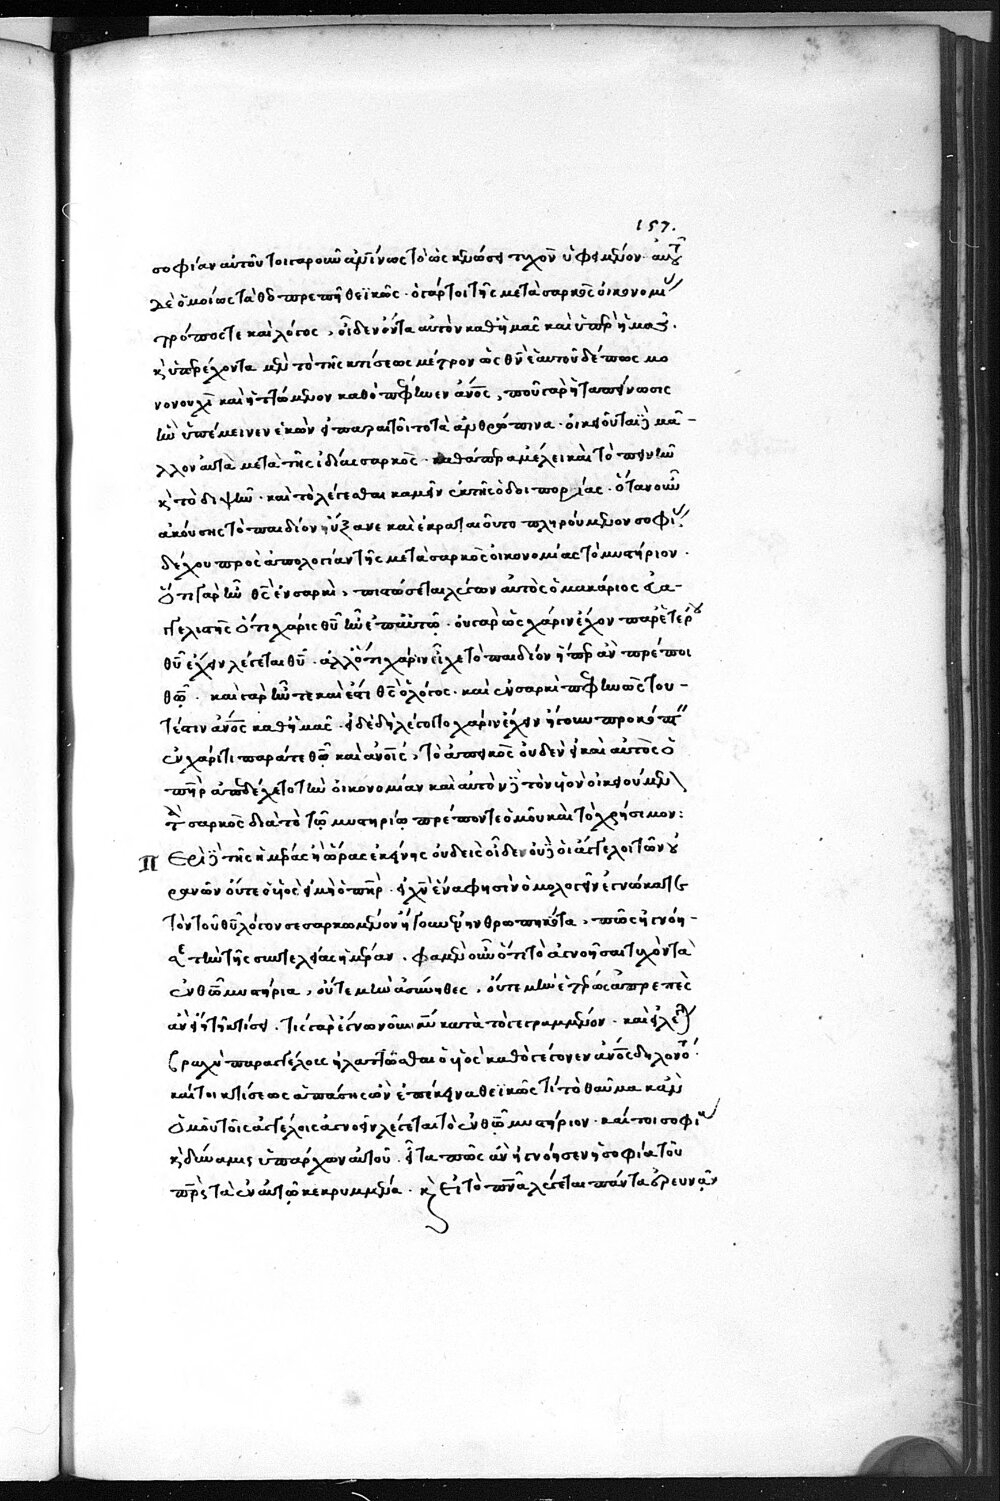 157.
σοφίαν αὐτὸν τοιγαροῦν ἀμείνως τὸ ὡς κτίσει τυχὸν ὑφειμένον αὐτ
δὲ ὁμοίως τὰ θεοπρεπῆ θεϊκῶς· ὁ γάρ τοι τῆς μετὰ σαρκὸς οἰκονομί
τρόπος τε καὶ λόγος, οἶδεν ὄντα αὐτὸν καθ' ἡμᾶς καὶ ὑπὲρ ἡμᾶς.
κ ὑπερέχοντα μὲν τὸ τῆς κτίσεως μέτρον ὡς θν ἑαυτοῦ δέ πως μο
νονουχὶ καὶ ἡττώμενον καθὸ πέφηνεν ἄνος, ποῦ γὰρ ἡ ταπείνωσις
ἣν ὑπέμεινεν ἑκὼν εἰ παραιτοῖτο τὰ ἀνθρώπινα· οἰκειοῦται μᾶ-
λλον αὐτὰ μετὰ τῆς ἰδίας σαρκός· καθάπερ ἀμέλει καὶ τὸ πεινῆν
κ τὸ διψῆν· καὶ τὸ λέγεσθαι καμεῖν ἐκ τῆς ὁδοιπορίας· ὅταν οὖν
ἀκούσῃς τὸ παιδίον ηὔξανε καὶ ἐκραταιοῦτο πληρούμενον σοφί
δέχου πρὸς ἀπολογίαν τῆς μετὰ σαρκὸς οἰκονομίας τὸ μυστήριον·
ὅτι γὰρ ἦν θς ἐν σαρκὶ, πιστώσεται λέγων αὐτὸς ὁ μακάριος εὐα-
γγελιστὴς ὅτι χάρις θυ ἦν ἐπ' αὐτῷ· οὐ γὰρ ὡς χάριν ἔχον παρ' ἑτέρου
θυ ἔχειν λέγεται θυ· ἀλλ' ὅτι χάριν εἶχε τὸ παιδίον ἥπερ ἂν πρέποι
θω· καὶ γὰρ ἦν τε καὶ ἔστι θς ὁ λόγος· καὶ ἐν σαρκὶ πέφηνως του-
τέστιν ἄνος καθ' ἡμᾶς· εἰ δὲ δὴ λέγοιτο χάριν ἔχειν ἤγουν προκόπτ
ἐν χάριτι παρά τε θω καὶ ἀνοις, τὸ ἀπεικὸς οὐδὲν εἰ καὶ αὐτὸς ὁ
πηρ ἀπεδέχετο τὴν οἰκονομίαν καὶ αὐτὸν τὸν υἱὸν οἰκειούμεν
τ σαρκὸς διὰ τὸ τῷ μυστηρίῳ πρέπον τε ὁμοῦ καὶ τὸ χρήσιμον:
Περὶ τῆς ἡμέρας ἢ ὥρας ἐκείνης οὐδεὶς οἶδεν οὐδὲ οἱ ἄγγελοι τῶν ου
ρανῶν οὔτε ὁ υἱὸς εἰ μὴ ὁ πηρ· εἶχεν ἕνα φησὶν ὁμολογεῖν ἐγνώκασι
τὸν τοῦ θυ λόγον σεσαρκωμένον ἤγουν ἐνηνθρωπηκότα, πῶς ἠγνόη-
σε τὴν τῆς συντελείας ἡμέραν· φαμὲν οὖν ὅτι τὸ ἀγνοῆσαι τυχὸν τὰ
ἐν θω μυστήρια, οὔτε μὴν ἀσύνηθες, οὔτε μὴν ἑτέρως ἀπρεπὲς
ἂν εἴη τῇ κτίσει· τίς γὰρ ἔγνω νοῦν κυ κατὰ τὸ γεγραμμένον· καὶ εἰ λέ
βραχὺ παρ' ἀγγέλοις ἠλαττῶσθαι ὁ υἱὸς καθὸ γέγονεν ἄνος δηλονότ
καίτοι κτίσεως ἁπάσης ὢν ἐπέκεινα θεϊκῶς τί τὸ θαῦμα κἂν
ὁμοῦ τοῖς ἀγγέλοις ἀγνοεῖν λέγεται τὸ ἐν θω μυστήριον· καίτοι σοφί
κ δύναμις ὑπάρχων αὐτοῦ· εἶτα πῶς ἂν ἠγνόησεν ἡ σοφία τοῦ
πρς τὰ ἐν αὐτῷ κεκρυμμένα· κ εἰ τὸ πνα λέγεται πάντα ἐρευνᾶν